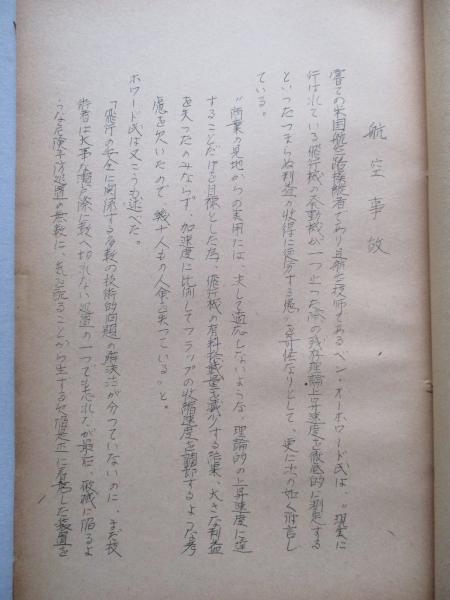 航空事故
嘗ての米国航空路操縦者であり且航空技師であるベン・オーホワード氏は、"現実に
行はれている飛行機の発動機が一つ止った際の残存理論上昇速度を徹底的に測定する
といったつまらぬ利益の収得に過分する憾"を奇怪なりとして、更に次の如く附言し
ている。
"商業的見地からの実用には、決して適応しないような、理論的の上昇速度に達
することだけを目標とした為、飛行機の有料搭載量を減少する結果、大きな利益
を失ったのみならず、加速度に比例してフラップの収縮速度を調節するような考
慮を欠いたので、幾十人もの人命を失っている"と。
ホワード氏は又こうも述べた。
「飛行の安全に関係する多数の技術的問題の解決法が分っていないのに、まだ技
術者は大事な場合に際に数へ切れない処置の一つでも忘れたが最后、破滅に陥るよ
うな危険予防処置の無数に、気を配ることから生ずる欠陥是正に着意した装置を